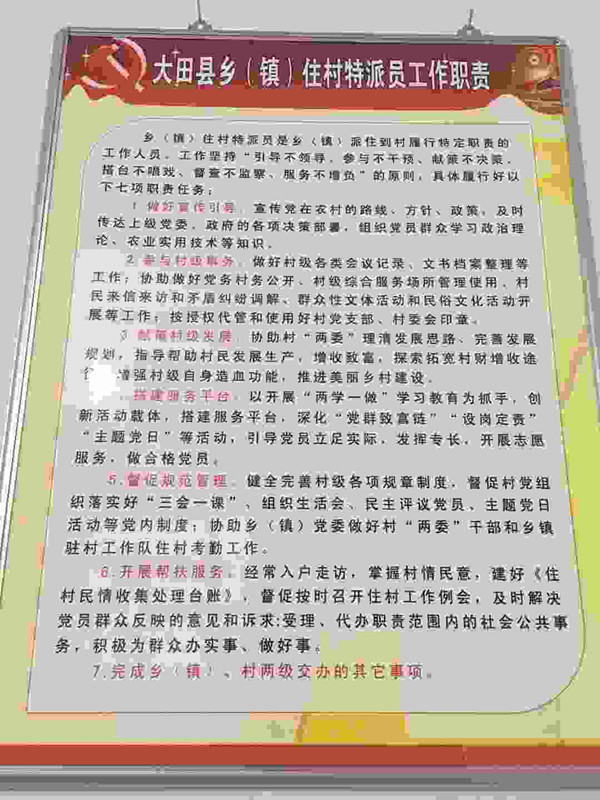 大田县乡（镇）住村特派员工作职责
乡（镇）住村特派员是乡（镇）派住到村履行特定职责的
工作人员。工作坚持“引导不领导、参与不干预、献策不决策、
搭台不唱戏、督查不监察、服务不增负”的原则，具体履行好以
下七项职责任务：
1.做好宣传引导。宣传党在农村的路线、方针、政策，及时
传达上级党委、政府的各项决策部署，组织党员群众学习政治理
论、农业实用技术等知识。
2.参与村级事务。做好村级各类会议记录、文书档案整理等
工作；协助做好党务村务公开、村级综合服务场所管理使用、村
民来信来访和矛盾纠纷调解、群众性文体活动和民俗文化活动开
展等工作；按授权代管和使用好村党支部、村委会印章。
3.献策村级发展。协助村“两委”理清发展思路、完善发展
规划，指导帮助村民发展生产，增收致富，探索拓宽村财增收途
增强村级自身造血功能，推进美丽乡村建设。
搭建服务平台。以开展“两学一做”学习教育为抓手，创
新活动载体，搭建服务平台，深化“党群致富链”“设岗定责”
“主题党日”等活动，引导党员立足实际，发挥专长，开展志愿
服务，做合格党员。
5.督促规范管理。健全完善村级各项规章制度，督促村党组
织落实好“三会一课”、组织生活会、民主评议党员、主题党日
活动等党内制度；协助乡（镇）党委做好村“两委”干部和乡镇
驻村工作队住村考勤工作。
6.开展帮扶服务。经常入户走访，掌握村情民意，建好《住
村民情收集处理台账》，督促按时召开住村工作例会，及时解决
党员群众反映的意见和诉求;受理、代办职责范围内的社会公共事
务，积极为群众办实事、做好事。
7.完成乡（镇）、村两级交办的其它事项。